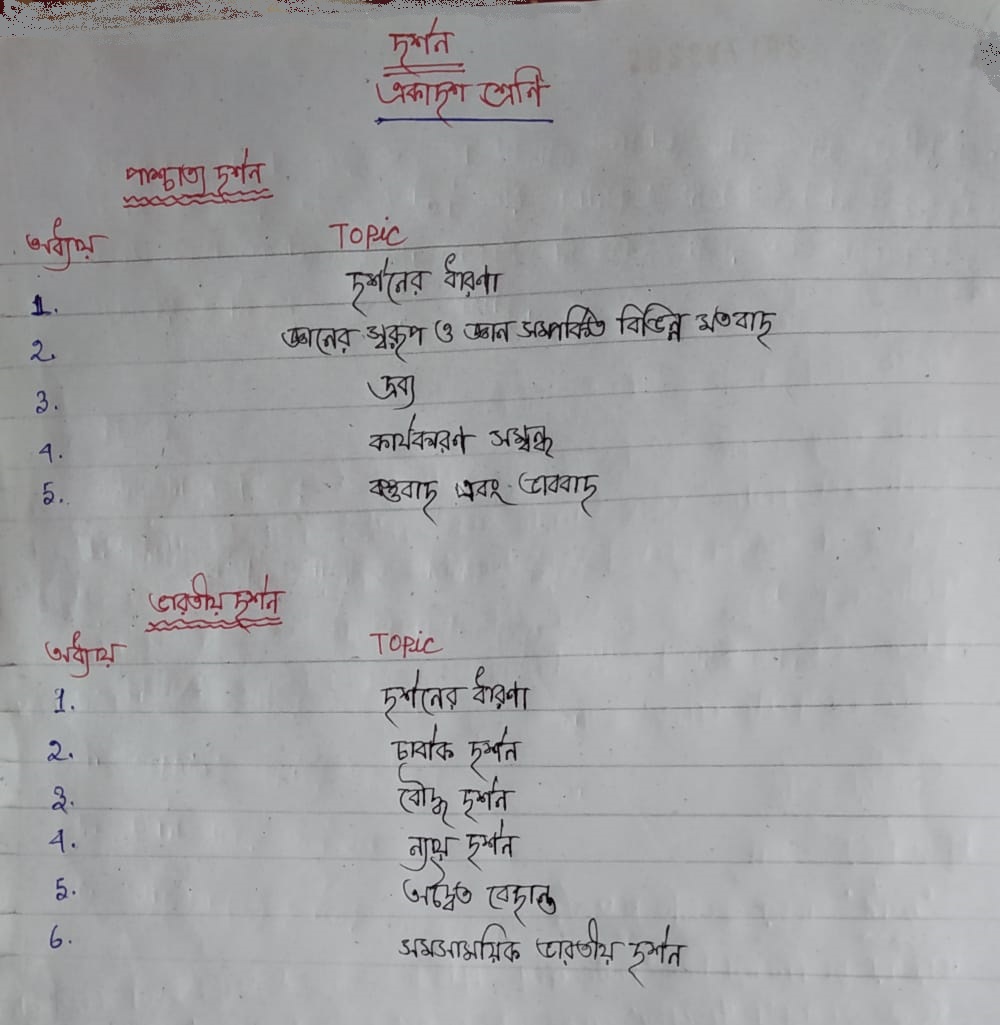 দর্শন
একাদশ শ্রেণি
পাশ্চাত্য দর্শন
অধ্যায় Topic
1. দর্শনের ধারণা
2. জ্ঞানের স্বরূপ ও জ্ঞান সম্পর্কিত বিভিন্ন মতবাদ
3. দ্রব্য
4. কার্যকারণ সম্বন্ধ
5. বস্তুবাদ এবং ভাববাদ
ভারতীয় দর্শন
অধ্যায় Topic
1. দর্শনের ধারণা
2. চার্বাক দর্শন
3. বৌদ্ধ দর্শন
4. ন্যায় দর্শন
5. অদ্বৈত বেদান্ত
6. সমসাময়িক ভারতীয় দর্শন